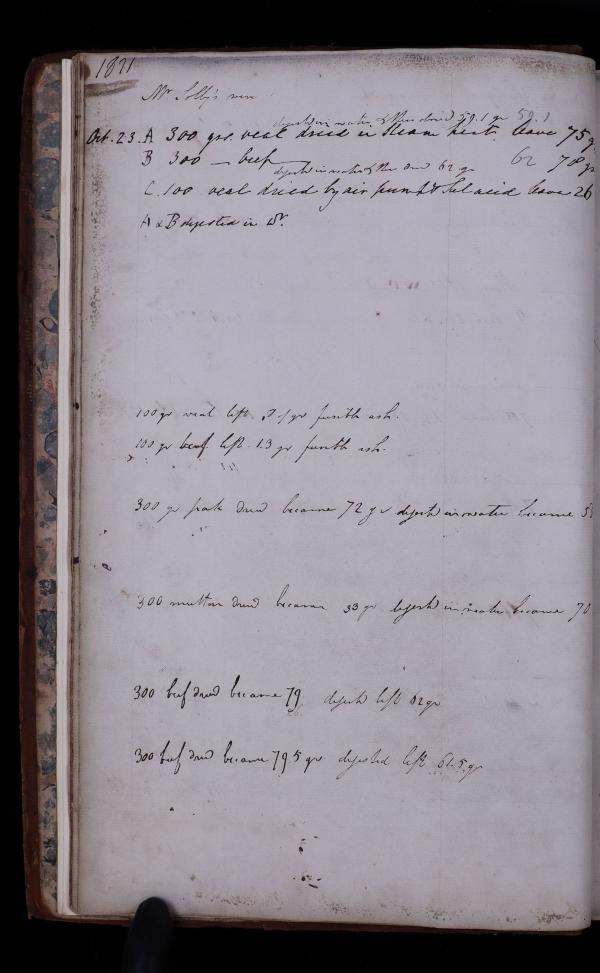 1821
Mr Solly's
digested in water & then dried 59.1 gr 59.1
Oct. 23. A 300 grs. veal dried in steam heat. leave 75 g
B 300 — beef 62 78 gr
digested in water & then dried 62 gr
C. 100 veal dried by air pump & Sul acid leave 26
A & B digested in W.
100 gr veal left gr ash.
100 gr beef left 1.3 gr ash.
300 gr pork dried became 72 gr digested in water became 5
300 mutton dried became gr digested in water became 70
300 beef dried became 79 digested left 62 gr
300 beef dried became 79.5 gr digested left 61.5 gr